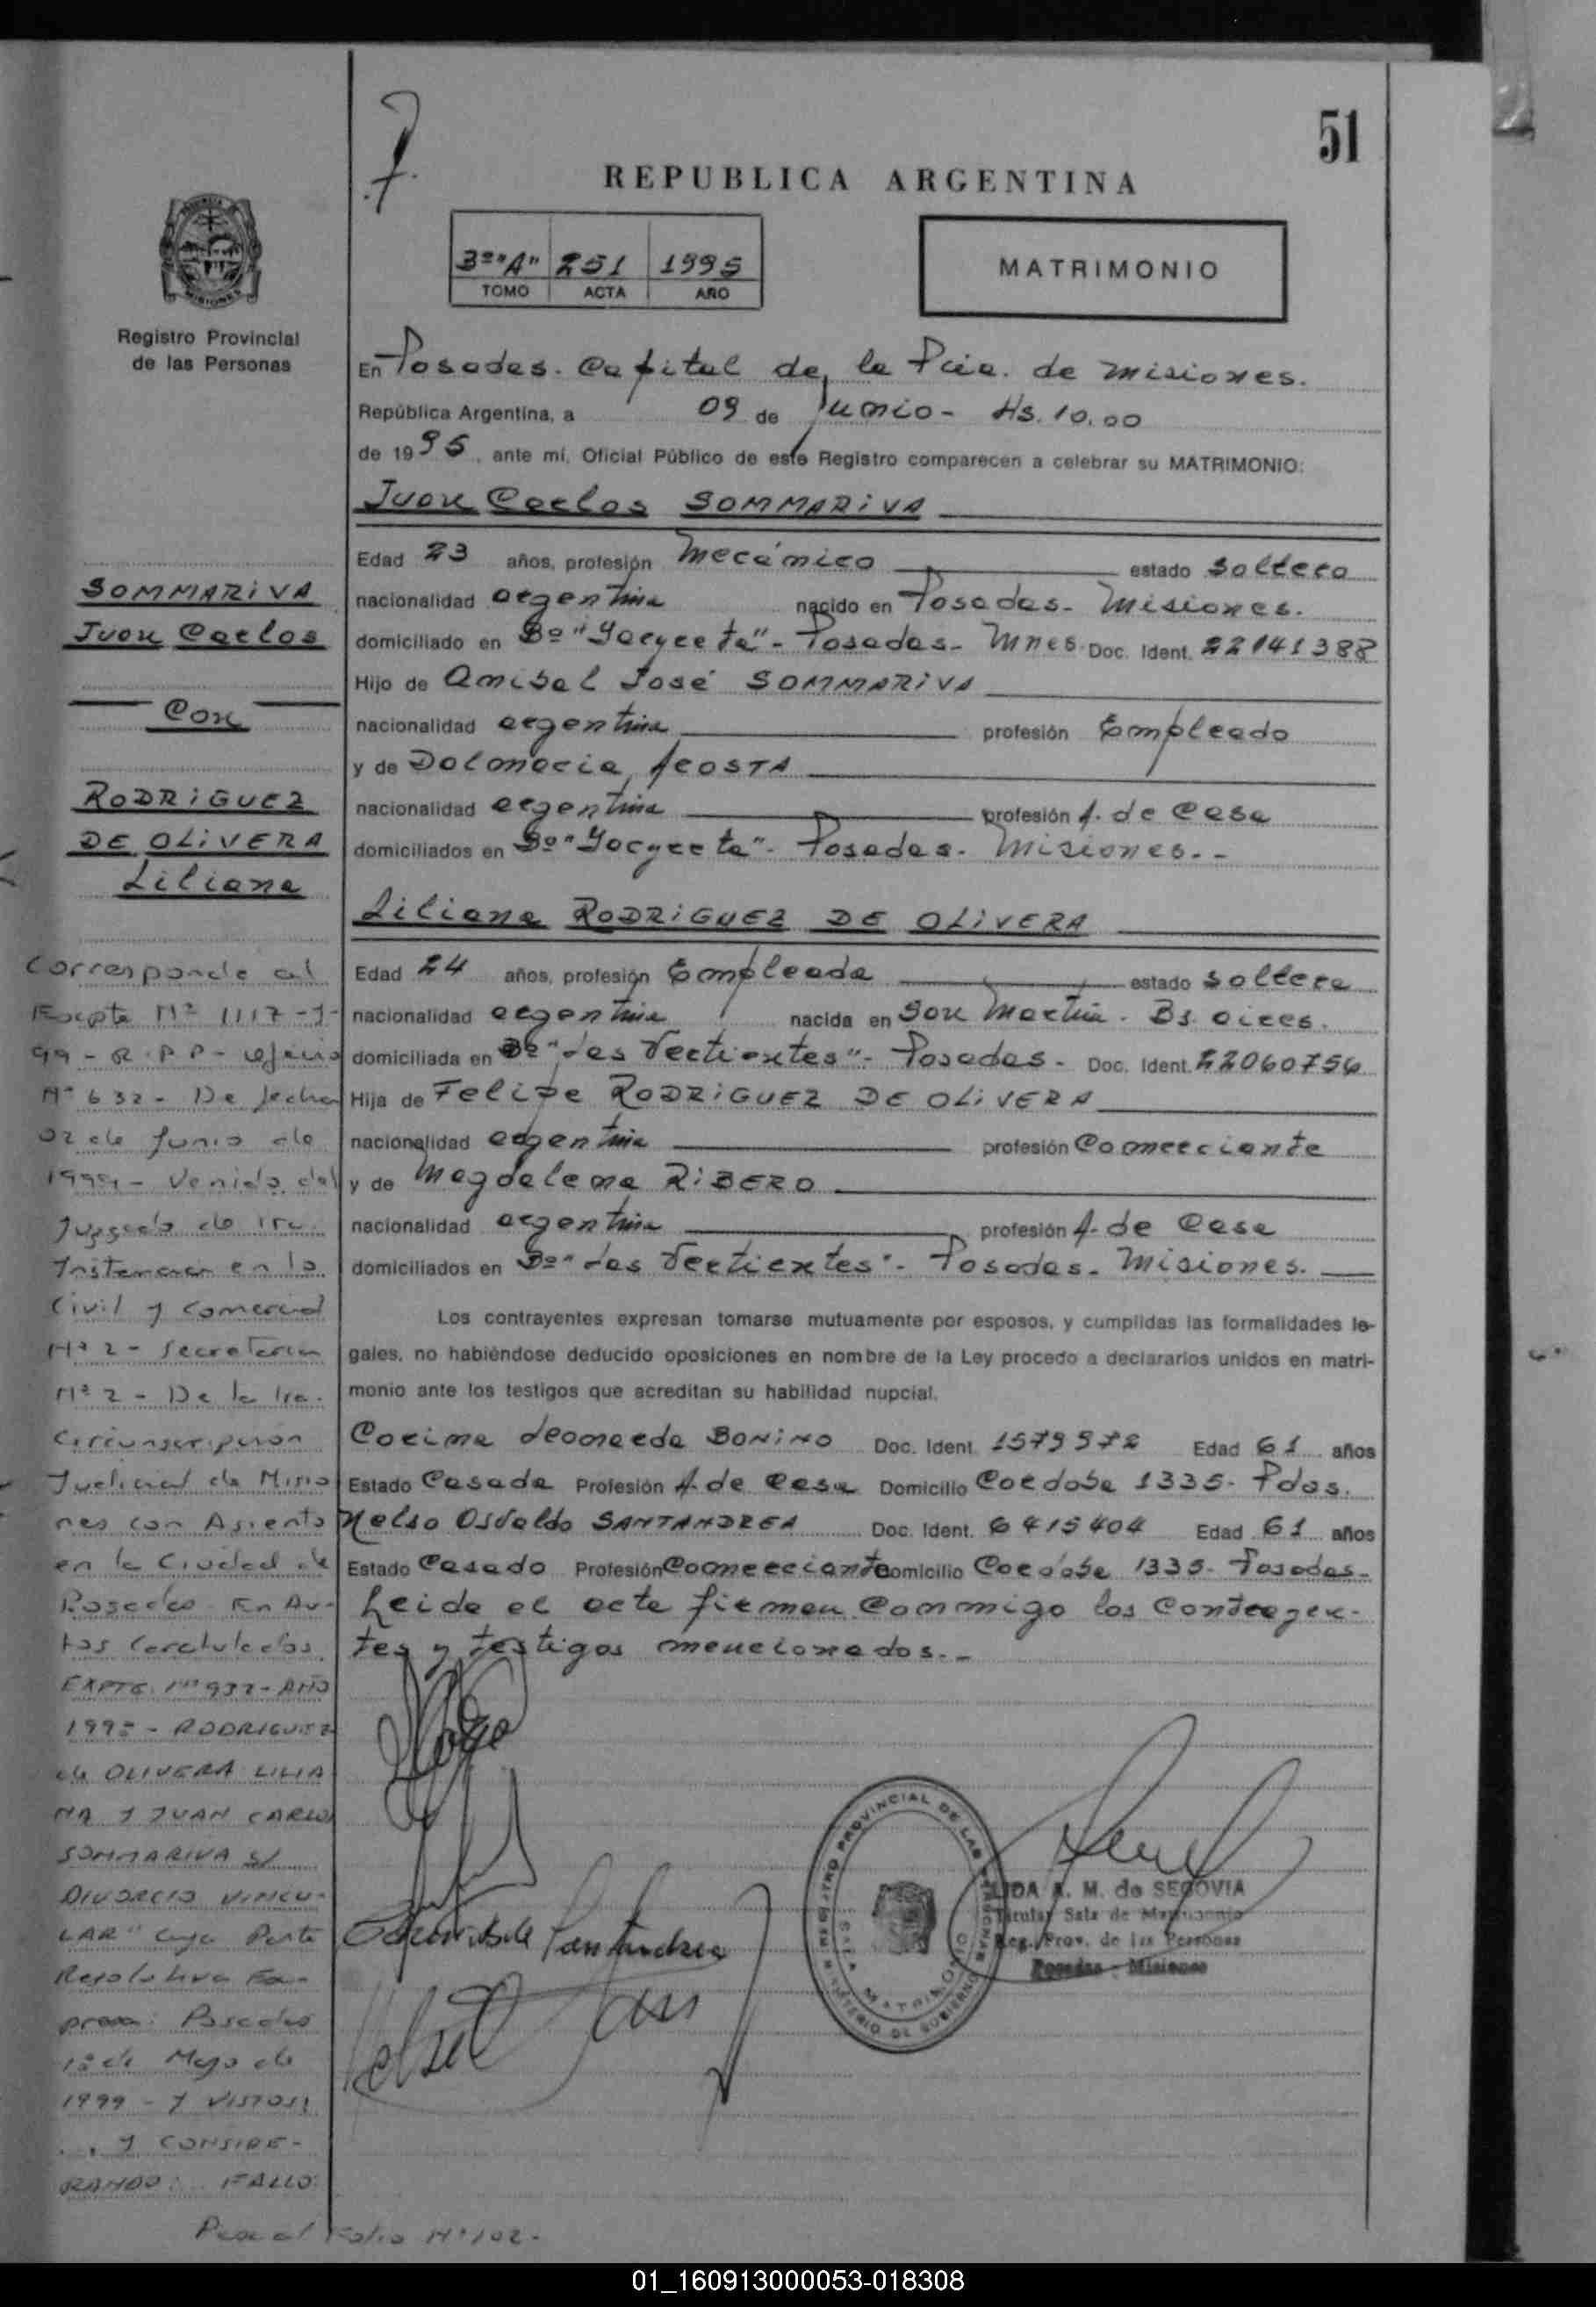 51
REPUBLICA ARGENTINA
3º "A" 251 1995
TOMO ACTA AÑO
MATRIMONIO
Registro Provincial
de las Personas
En Posadas. Capital de la Pcia. de Misiones.
República Argentina, a 09 de Junio - Hs. 10,00
de 1995, ante mí, Oficial Público de este Registro comparecen a celebrar su MATRIMONIO:
Juan Carlos SOMMARIVA
Edad 23 años, profesión Mecánico estado soltero
nacionalidad argentina nacido en Posadas - Misiones.
domiciliado en Bº "Yacyreta" - Posadas - Mnes. Doc. Ident. 22141388
Hijo de Anibal José SOMMARIVA
nacionalidad argentina profesión Empleado
y de ACOSTA
nacionalidad argentina profesión A. de Casa
domiciliados en Bº "Yacyreta" - Posadas - Misiones.-
Liliana RODRIGUEZ DE OLIVERA
Edad 24 años, profesión Empleada estado soltera
nacionalidad argentina nacida en San Martín - Bs. Aires.
domiciliada en Bº "Las Vertientes" - Posadas - Doc. Ident. 22060756
Hija de Felipe RODRIGUEZ DE OLIVERA
nacionalidad argentina profesión Comerciante
y de Magdalena RIBERO
nacionalidad argentina profesión A. de Casa
domiciliados en Bº "Las Vertientes" - Posadas - Misiones.
Los contrayentes expresan tomarse mutuamente por esposos, y cumplidas las formalidades le-
gales, no habiéndose deducido oposiciones en nombre de la Ley procedo a declararlos unidos en matri-
monio ante los testigos que acreditan su habilidad nupcial.
Corina Leonarda BONINO Doc. Ident. 1579972 Edad 61 años
Estado Casada Profesión A. de Casa Domicilio Cordoba 1335 - Pdas.
Nelso Osvaldo SANTANDREA Doc. Ident. 6415404 Edad 61 años
Estado Casado Profesión Comerciante Domicilio Cordoba 1335 - Posadas -
Leida el acta firman conmigo los contrayen-
tes y testigos mencionados.-
SOMMARIVA
Juan Carlos
Con
RODRIGUEZ
DE OLIVERA
Liliana
Corresponde al
Expte Nº 1117-J-
99 - R.P.P - oficio
Nº 632 - De fecha
02 de Junio de
1999 - Venido del
Juzgado de 1ra.
Instancia en lo
Civil y Comercial
Nº 2 - Secretaria
Nº 2 - De la 1ra.
Circunscripción
Judicial de Misio
nes con Asiento
en la Ciudad de
Posadas - En Au-
tos Caratulados
EXPTE. Nº 932 - AÑO
RODRIGUEZ
de OLIVERA LILIA
NA Y JUAN CARLO
SOMMARIVA S/
DIVORCIO VINCU-
LAR" cuya Parte
Resolutiva Ex-
presa: Posadas
de Mayo de
1999 - Y VISTOS:
.. Y CONSIDE-
RANDO: FALLO:
Pasa al Folio Nº 102-
REGISTRO PROVINCIAL DE LAS PERSONAS
MINISTERIO DE GOBIERNO
SALA MATRIMONIO
LIDA A. M. de SEGOVIA
Titular Sala de Matrimonio
Reg. Prov. de las Personas
Posadas - Misiones
01_160913000053-018308